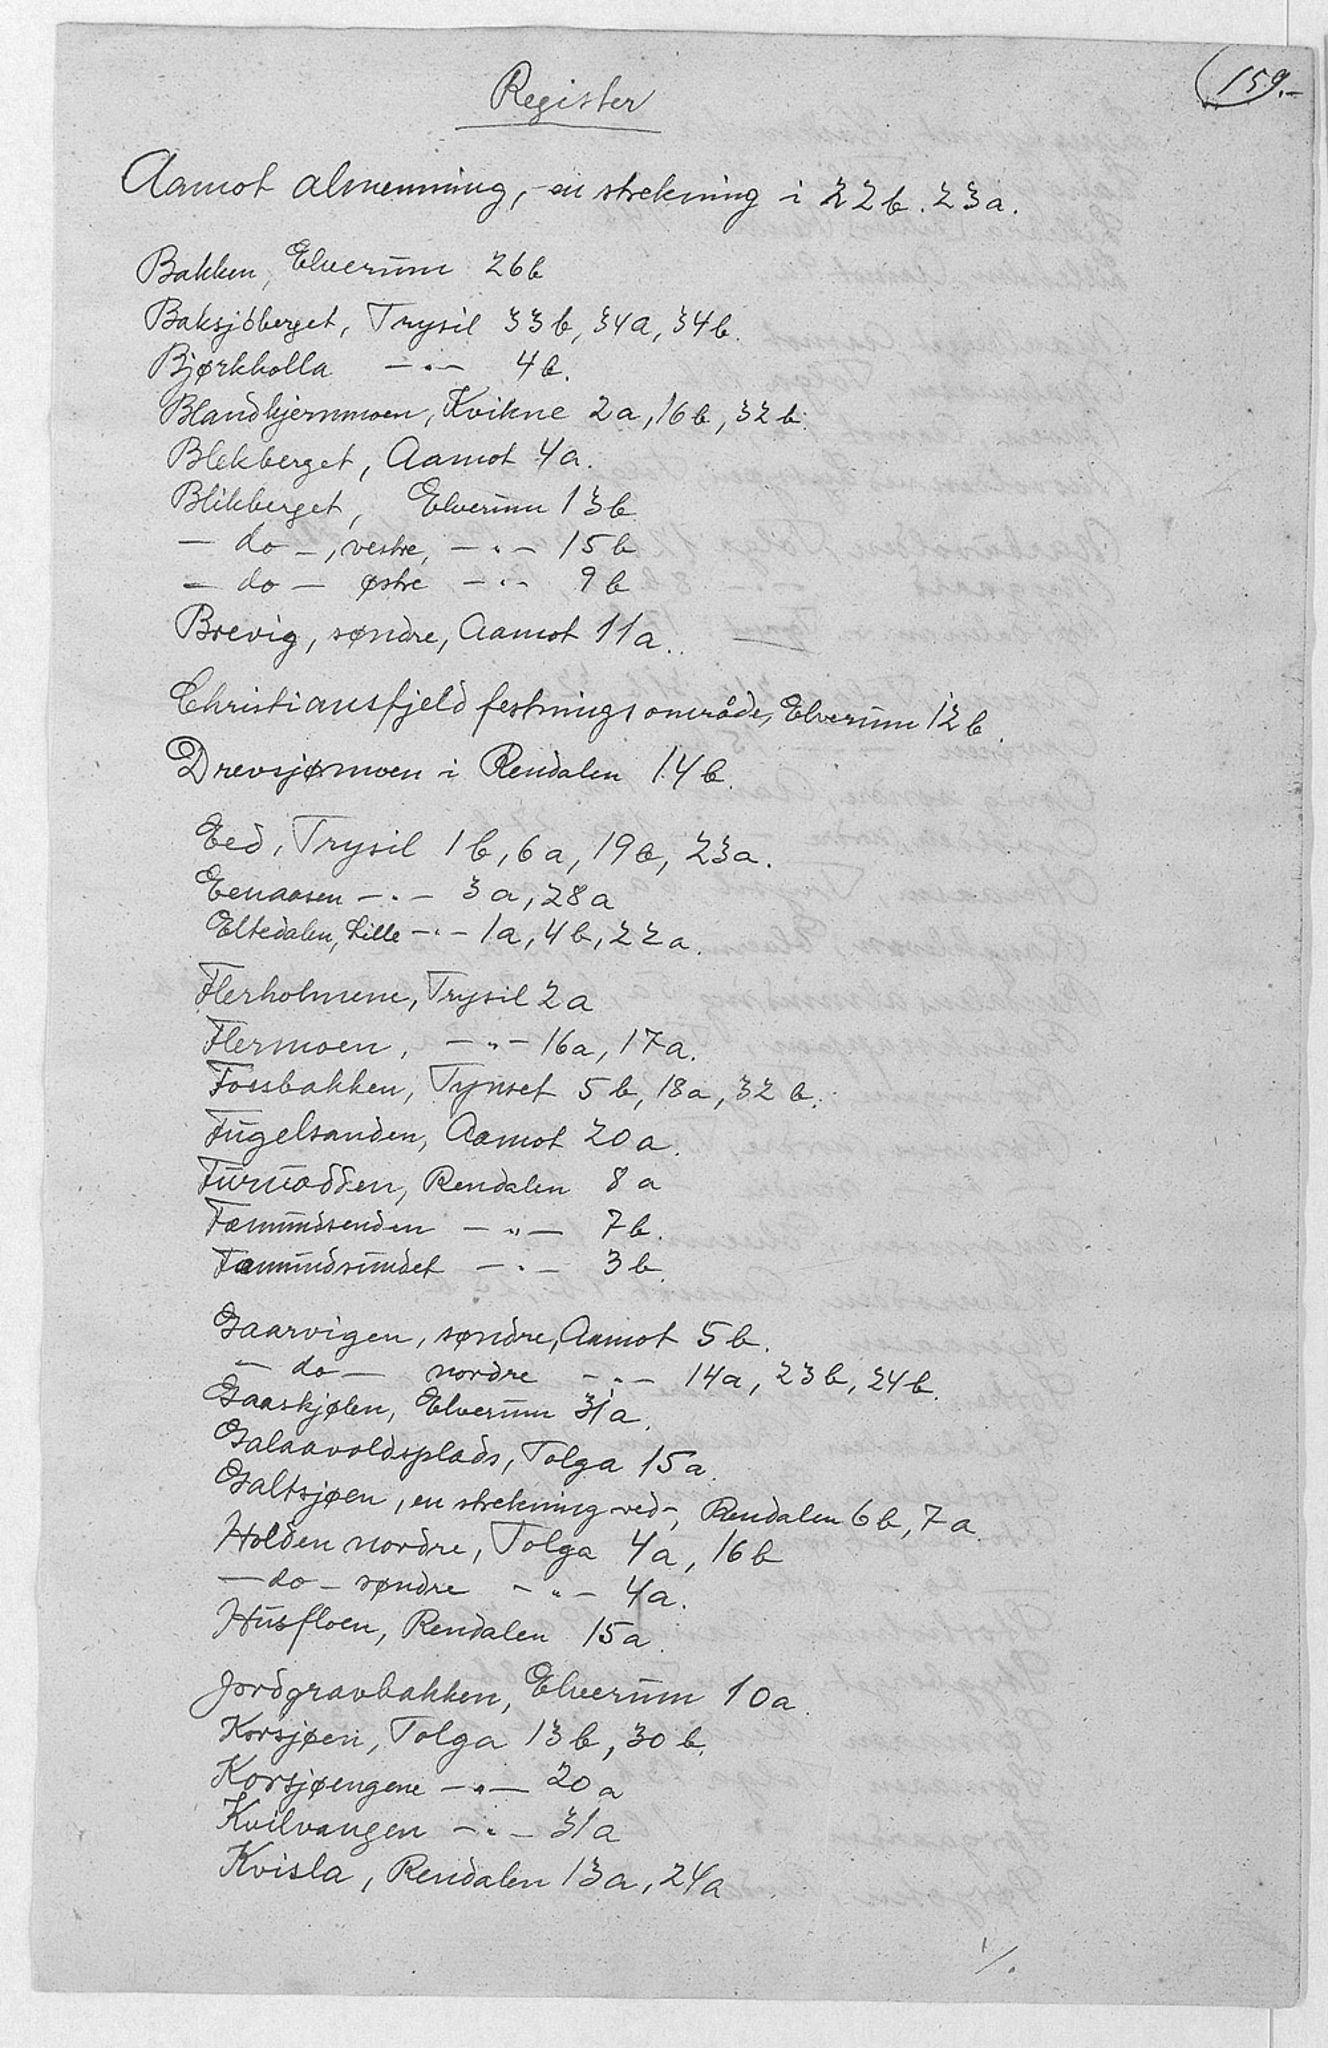 159.-
Register
Aamot almenning, - en strekning i 22b. 23a.
Bakken, Elverum 26b
Baksjøberget, Trysil 33b, 34a, 34b.
Bjørkholla —"— 4b.
Blandkjernmoen, Kvikne 2a, 16b, 32b.
Blekberget, Aamot 4a.
Blikberget, Elverum 13b
— do —, vestre, —"— 15b
— do — østre —"— 9b
Brevig, søndre, Aamot 11a.
Christiansfjeld festningsområde, Elverum 12b.
Drevsjømoen i Rendalen 14b.
Eed, Trysil 1b, 6a, 19a, 23a.
Eenaasen —"— 3a, 28a
Eltedalen, Lille —"— 1a, 4b, 22a.
Flerholmene, Trysil 2a
Flermoen, —"— 16a, 17a.
Fossbakken, Tynset 5b, 18a, 32b.
Fugelsanden, Aamot 20a.
Furuodden, Rendalen 8a
Fæmundsenden —"— 7b.
Fæmundsundet —"— 3b.
Gaarvigen, søndre, Aamot 5b.
— do — nordre —"— 14a, 23b, 24b.
Gaaskjølen, Elverum 31a.
Galaavoldsplads, Tolga 15a.
Galtsjøen, en strekning ved-, Rendalen 6b, 7a.
Holden nordre, Tolga 4a, 16b
— do — søndre —"— 4a.
Husfloen, Rendalen 15a.
Jordgravbakken, Elverum 10a.
Korsjøen, Tolga 13b, 30b.
Korsjøengene —"— 20a
Kvilvangen —"— 31a
Kvisla, Rendalen 13a, 24a
./.